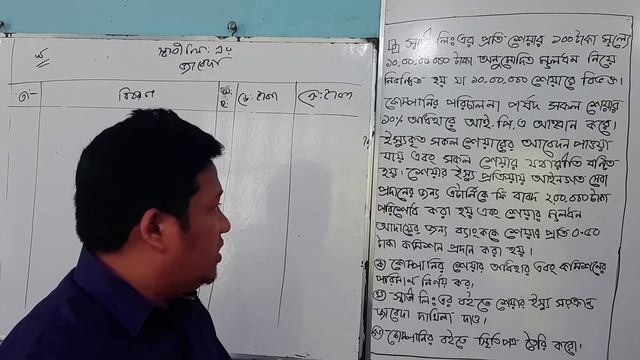 স্বাতী লিঃ এর
জাবেদা
তাং
বিবরণ
ডেঃ টাকা
ক্রেঃ টাকা
স্বাতী লিঃ এর প্রতি শেয়ার ১০০ টাকা মূল্যে
১০,০০,০০,০০০ টাকা অনুমোদিত মূলধন নিয়ে
নিবন্ধিত হয় যা ১০,০০,০০০ শেয়ারে বিভক্ত।
কোম্পানির পরিচালনা পর্ষদ সকল শেয়ার
১০% অধিহারে আই.পি.ও আহ্বান করে।
ইস্যুকৃত সকল শেয়ারের আবেদন পাওয়া
যায় এবং সকল শেয়ার যথারীতি বণ্টিত
হয়। শেয়ার ইস্যু প্রক্রিয়ায় আইনগত সেবা
প্রদানের জন্য এটর্নিকে ফি বাবদ ২০০,০০০ টাকা
পরিশোধ করা হয় এবং শেয়ার মূলধন
আদায়ের জন্য ব্যাংককে শেয়ার প্রতি ০.৫০
টাকা কমিশন প্রদান করা হয়।
(ক) কোম্পানির শেয়ার অধিহার এবং কমিশনের
পরিমাণ নির্ণয় কর।
(খ) স্বাতী লিঃ এর বইতে শেয়ার ইস্যু সংক্রান্ত
জাবেদা দাখিলা দাও।
(গ) কোম্পানির বইতে স্থিতিপত্র তৈরি করো।